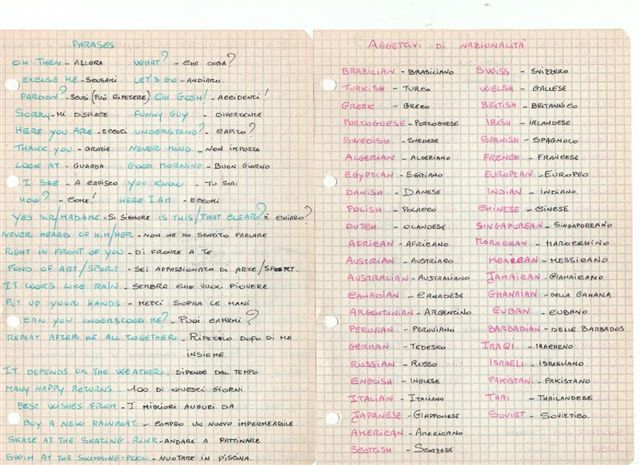 PHRASES
OH THEN - ALLORA WHAT? - CHE COSA?
EXCUSE ME - SCUSAMI LET'S GO - ANDIAMO
PARDON? - SCUSI (PUÒ RIPETERE) OH GOSH! - ACCIDENTI!
SORRY - MI DISPIACE FUNNY GUY - DIVERTENTE
HERE YOU ARE - ECCOCI UNDERSTAND? - CAPITO?
THANK YOU - GRAZIE NEVER MIND - NON IMPORTA
LOOK AT - GUARDA GOOD MORNING - BUON GIORNO
I SEE - A CAPISCO YOU KNOW - TU SAI
HOW? - COME! HERE I AM - ECCOMI
YES SIR/MADAME - SI SIGNORE IS THIS/THAT CLEAR? È CHIARO?
NEVER HEARD OF HIM/HER - NON NE HO SENTITO PARLARE
RIGHT IN FRONT OF YOU - DI FRONTE A TE
FOND OF ART/SPORT - SEI APPASSIONATO DI ARTE/SPORT.
IT LOOKS LIKE RAIN - SEMBRA CHE VUOL PIOVERE
PUT UP YOUR HANDS - METTI SOPRA LE MANI
CAN YOU UNDERSTOOD ME? - PUOI CAPIRMI?
REPEAT AFTER ME ALL TOGETHER - RIPETELO DOPO DI ME
INSIEME
IT DEPENDS ON THE WEATHER - DIPENDE DAL TEMPO
MANY HAPPY RETURNS - 100 DI QUESTI GIORNI
BEST WISHES FROM - I MIGLIORI AUGURI DA
BUY A NEW RAINCOAT - COMPRO UN NUOVO IMPERMEABILE
SKATE AT THE SKATING RINK - ANDARE A PATTINARE
SWIM AT THE SWIMMING-POOL - NUOTARE IN PISCINA.
AGGETTIVI DI NAZIONALITÀ
BRAZILIAN - BRASILIANO SWISS - SVIZZERO
TURKISH - TURCO WELSH - GALLESE
GREEK - GRECO BRITISH - BRITANNICO
PORTOGUESE - PORTOGHESE IRISH - IRLANDESE
SWEDISH - SVEDESE SPANISH - SPAGNOLO
ALGERIAN - ALGERIANO FRENCH - FRANCESE
EGYPTIAN - EGIZIANO EUROPEAN - EUROPEO
DANISH - DANESE INDIAN - INDIANO
POLISH - POLACCO CHINESE - CINESE
DUTCH - OLANDESE SINGAPOREAN - SINGAPOREANO
AFRICAN - AFRICANO MOROCCAN - MAROCCHINO
AUSTRIAN - AUSTRIACO MEXICAN - MESSICANO
AUSTRALIAN - AUSTRALIANO JAMAICAN - GIAMAICANO
CANADIAN - CANADESE GHANAIAN - DELLA GAHANA
ARGENTINIAN - ARGENTINO CUBAN - CUBANO
PERUVIAN - PERUVIANO BARBADIAN - DELLE BARBADOS
GERMAN - TEDESCO IRAQI - IRACHENO
RUSSIAN - RUSSO ISRAELI - ISRAELIANO
ENGLISH - INGLESE PAKISTANI - PAKISTANO
ITALIAN - ITALIANO THAI - THAILANDESE
JAPANESE - GIAPPONESE SOVIET - SOVIETICO.
AMERICAN - AMERICANO
SCOTTISH - SCOZZESE